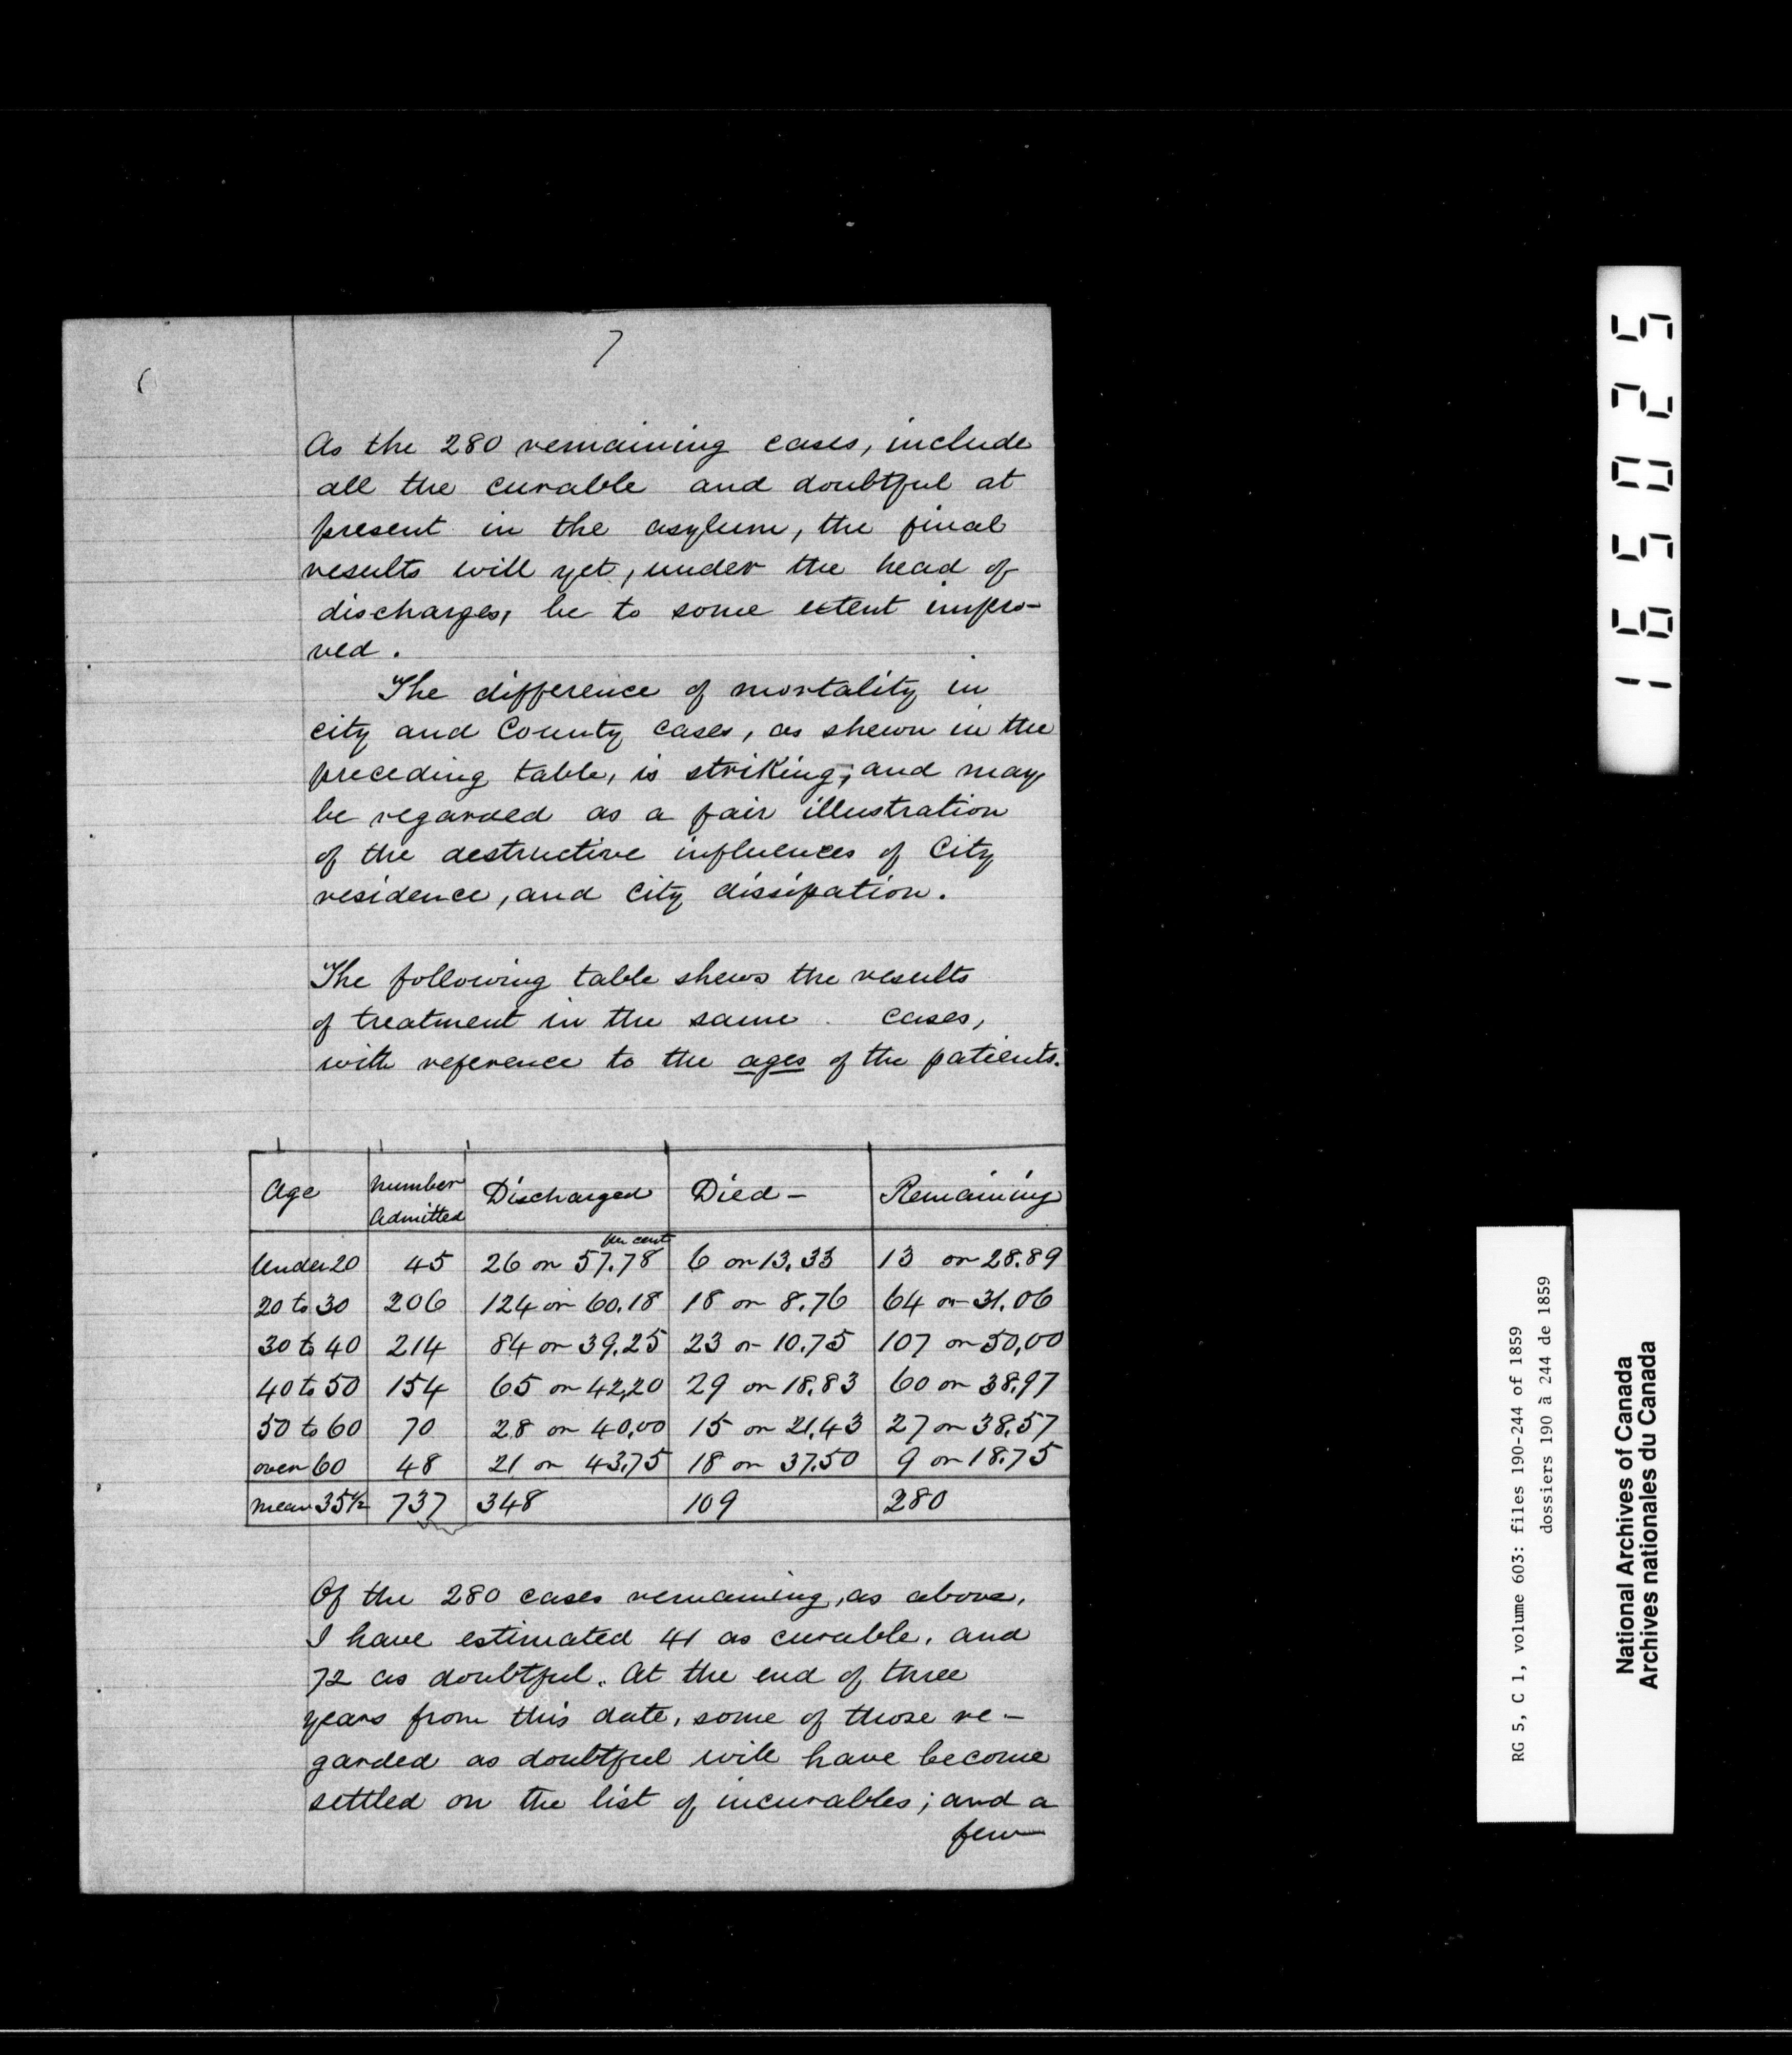 7
As the 280 remaining cases, include
all the curable and doubtful at
present in the asylum, the final
results will yet, under the head of
discharges, be to some extent impro-
ved.
The difference of mortality in
city and County cases, as shewn in the
preceding table, is striking; and may
be regarded as a fair illustration
of the destructive influences of City
residence, and City dissipation.
The following table shews the results
of treatment in the same cases,
with reference to the ages of the patients.
Age | Number Admitted | Discharged | Died - | Remaining
per cent
Under 20 | 45 | 26 or 57.78 | 6 or 13.33 | 13 or 28.89
20 to 30 | 206 | 124 or 60.18 | 18 or 8.76 | 64 or 31.06
30 to 40 | 214 | 84 or 39.25 | 23 or 10.75 | 107 or 50,00
40 to 50 | 154 | 65 or 42,20 | 29 or 18.83 | 60 or 38,97
50 to 60 | 70 | 28 or 40,00 | 15 or 21,43 | 27 or 38,57
over 60 | 48 | 21 or 43,75 | 18 or 37,50 | 9 or 18.75
mean 35½ | 737 | 348 | 109 | 280
Of the 280 cases remaining, as above,
I have estimated 41 as curable, and
72 as doubtful. At the end of three
years from this date, some of those re-
garded as doubtful will have become
settled on the list of incurables; and a
few
165025
RG 5, C 1, volume 603: files 190-244 of 1859
dossiers 190 à 244 de 1859
National Archives of Canada
Archives nationales du Canada